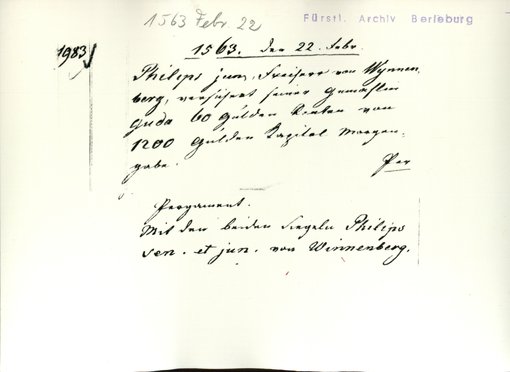 1563 Febr 22
Fürstl. Archiv Berleburg
1983
1563. den 22. Febr.
Philips jun, Freiherr von Wynnen
berg, versichert seiner Gemahlin
Guda 60 Gulden Renten von
1200 Gulden Kapital Morgen-
gabe.
Per
Pergament.
Mit den beiden Siegeln Philips
sen. et jun. von Winnenberg.